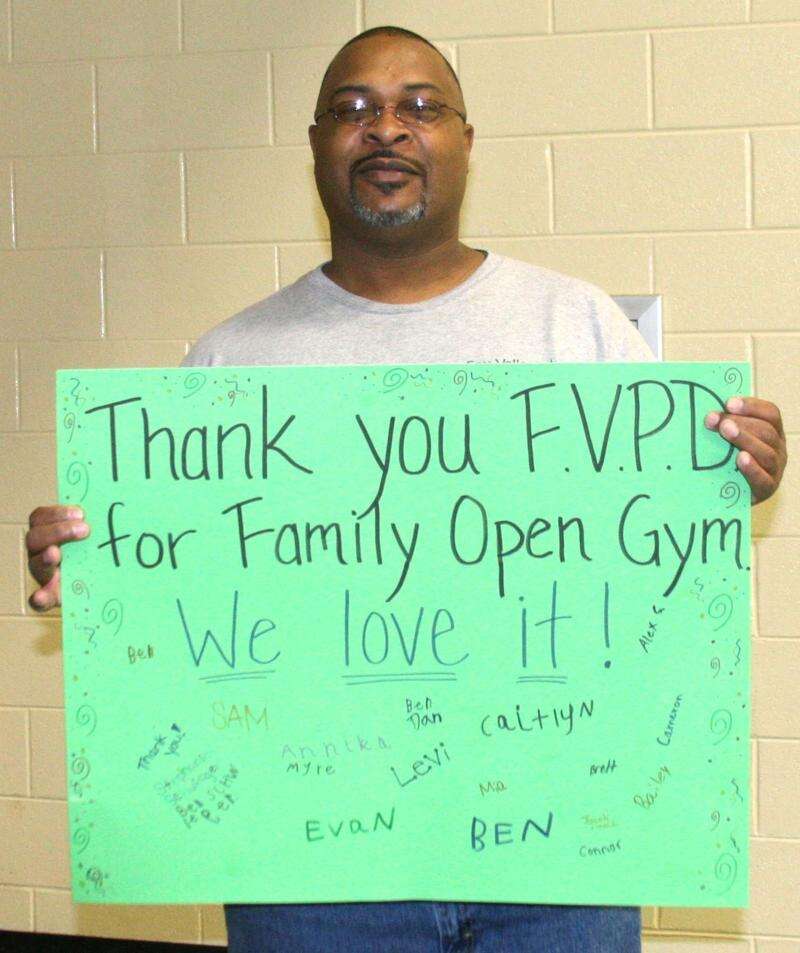 Thank you F.V.P.D.
for Family Open Gym.
We love it!
Alex G.
Ben
SAM
Ben
Dan
CaitlyN
Cameron
Thank
you!
Annika
Myre
Levi
Mia
Brett
Bailey
EvaN
BEN
Connor